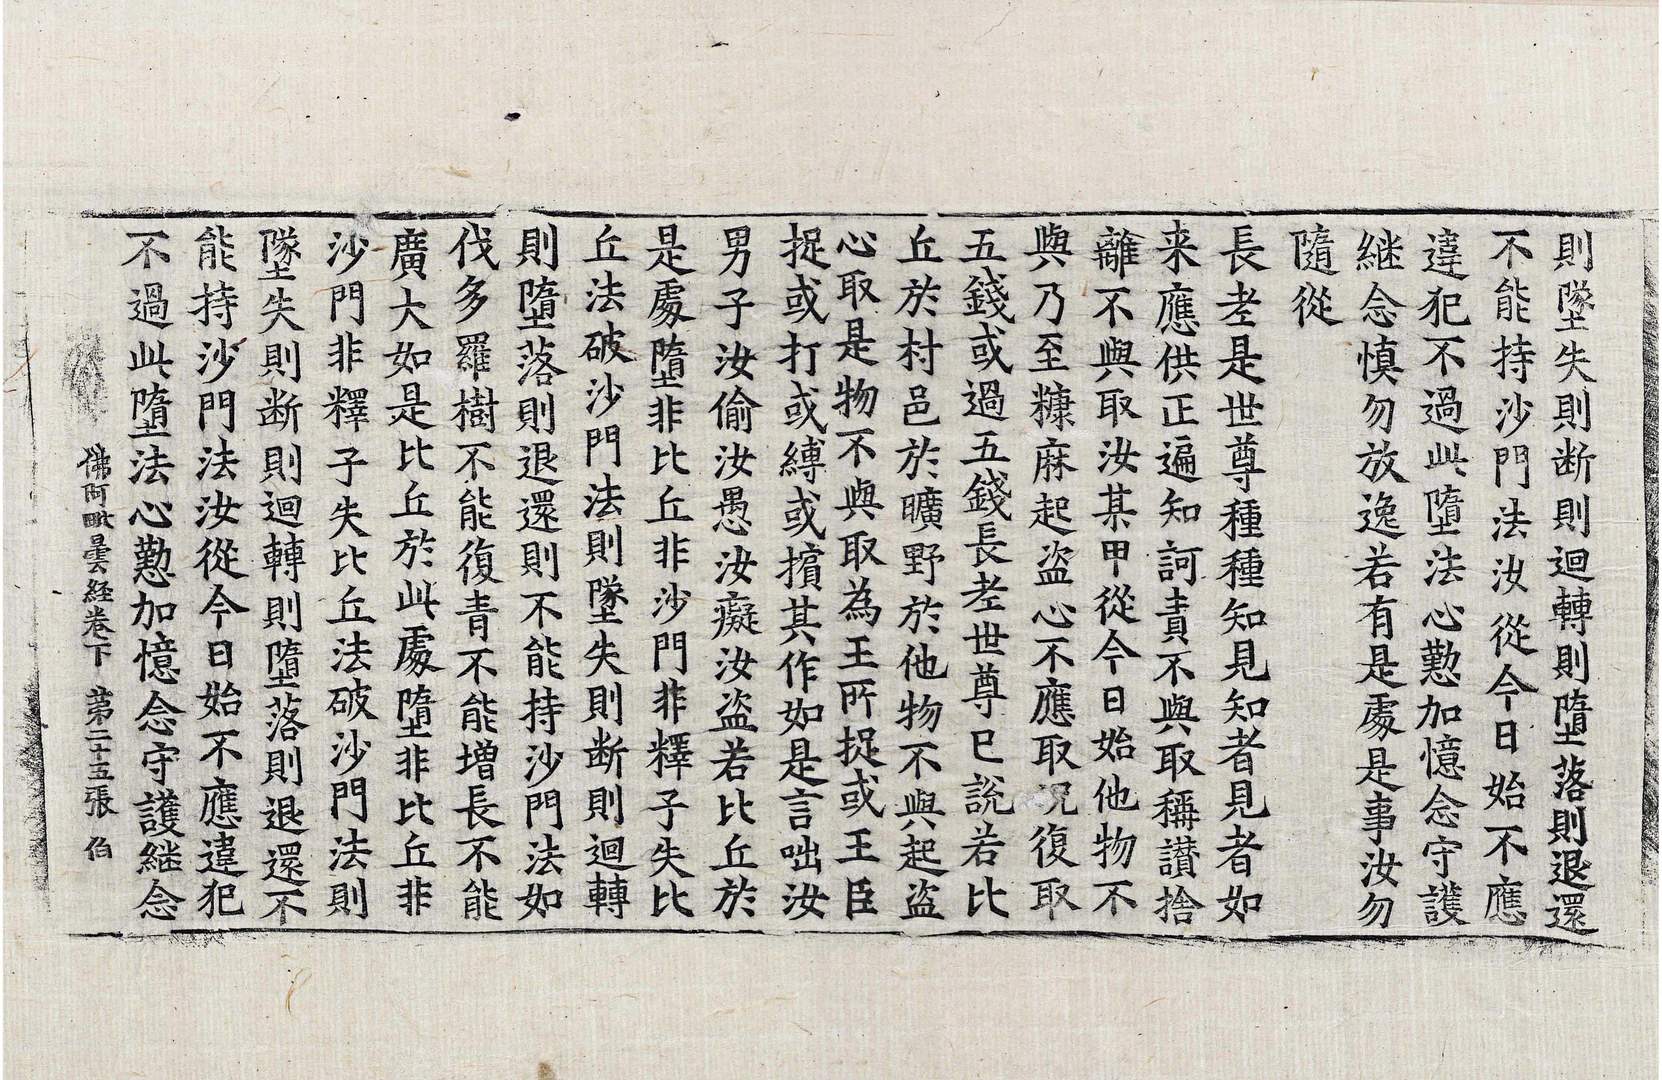 則墬失則断則迴轉則墮落則退還
不能持沙門法汝從今日始不應
違犯不過此墮法心懃加憶念守護
継念慎勿放逸若有是處是事汝勿
隨從
長老是世尊種種知見知者見者如
来應供正遍知訶責不與取稱讃捨
離不與取汝某甲從今日始他物不
與乃至糠麻起盗心不應取況復取
五錢或過五錢長老世尊已說若比
丘於村邑於曠野於他物不與起盗
心取是物不與取為王所捉或王臣
捉或打或縛或擯其作如是言咄汝
男子汝偷汝愚汝癡汝盗若比丘於
是處墮非比丘非沙門非釋子失比
丘法破沙門法則墬失則断則迴轉
則墮落則退還則不能持沙門法如
伐多羅樹不能復青不能増長不能
廣大如是比丘於此處墮非比丘非
沙門非釋子失比丘法破沙門法則
墬失則断則迴轉則墮落則退還不
能持沙門法汝從今日始不應違犯
不過此墮法心懃加憶念守護継念
佛阿毗曇経卷下 第二十五張 伯